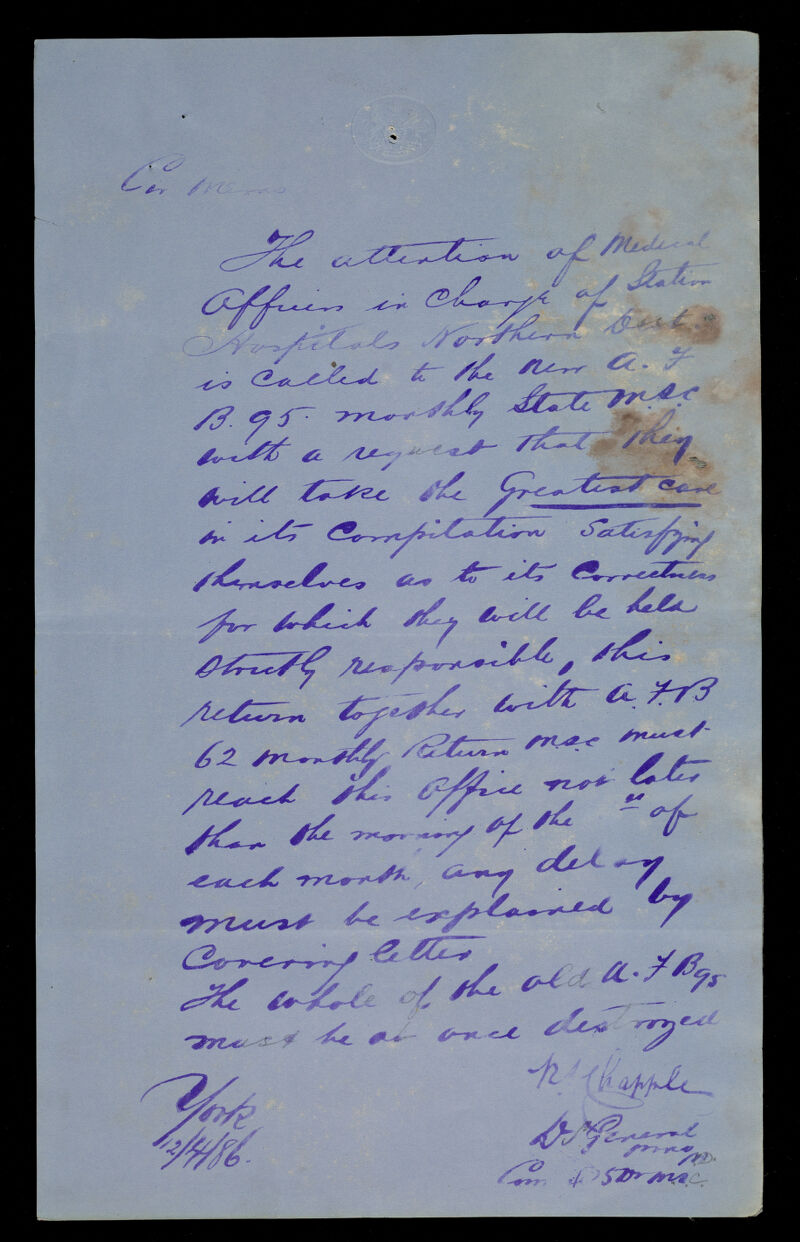 Cir Memo
The attention of Medical
Officers in Charge of Station
Hospitals Northern Dist.
is called to the new A. F
B. 95. monthly State M.S.C
with a request that they
will take the Greatest care
in its Compilation Satisfying
themselves as to its Correctness
for which they will be held
strictly responsible, this
return together with A. F. B
62 monthly Return M.S.C must
reach this Office not later
than the morning of the of
each month, any delay
must be explained by
Covering letter
The whole of the old A. F B 95
must be at once destroyed
Chapple
York
12/4/86.
D. S. General
Com 5 D M.S.C.